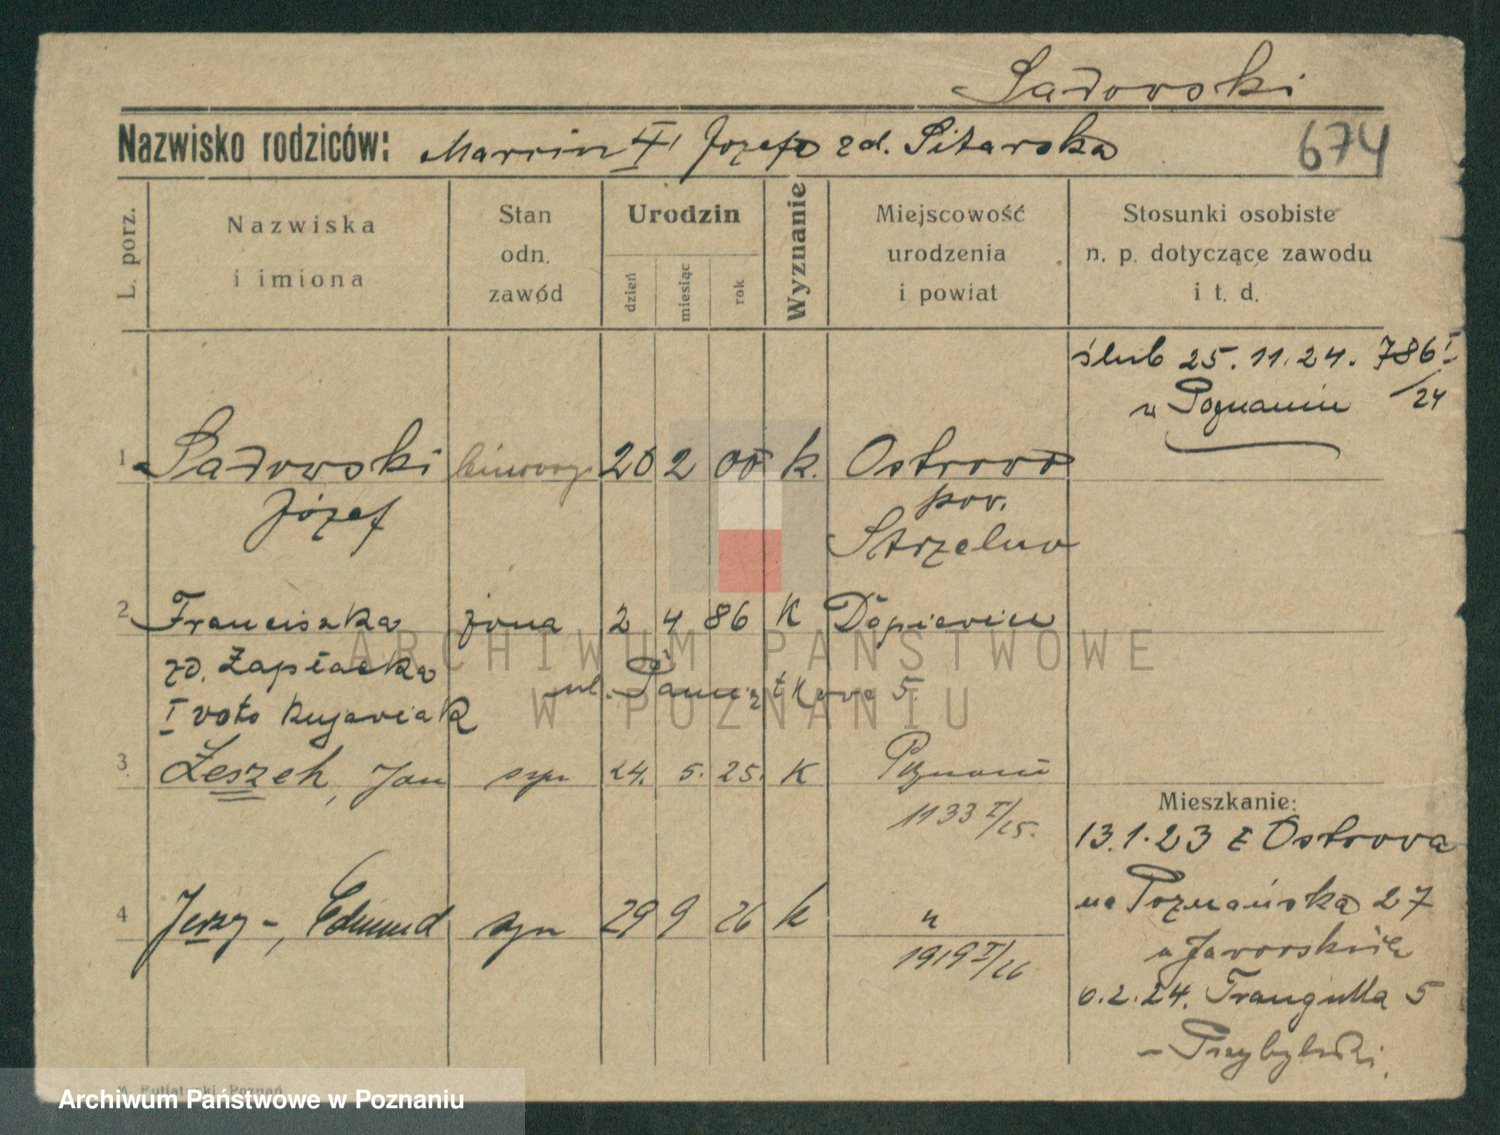 Sadowski
Nazwisko rodziców: Marcin II Józefa zd. Pitarska
674
L. porz.
Nazwiska
i imiona
Stan
odn.
zawód
Urodzin
dzień
miesiąc
rok
Wyznanie
Miejscowość
urodzenia
i powiat
Stosunki osobiste
n. p. dotyczące zawodu
i t. d.
ślub 25.11.24. 786 I
/24
w Poznaniu
1 Sadowski 20 2 00 k. Ostrowo
Józef
pow.
Strzelno
2 Franciszka żona 2 4 86 K Dopiewiec
zd. Łapłacka
I voto Kujawiak
ul. 5
3. Leszek, Jan syn 24. 5. 25. K Poznań
1133 I/25.
4 Jerzy -, Edmund syn 29 9 26 k "
1919 I/26
Mieszkanie:
13.1.23 z Ostrowa
na Poznańska 27
u
6.2.24. Traugutta 5
- Przybylski.
ARCHIWUM PAŃSTWOWE
W POZNANIU
Poznań
Archiwum Państwowe w Poznaniu